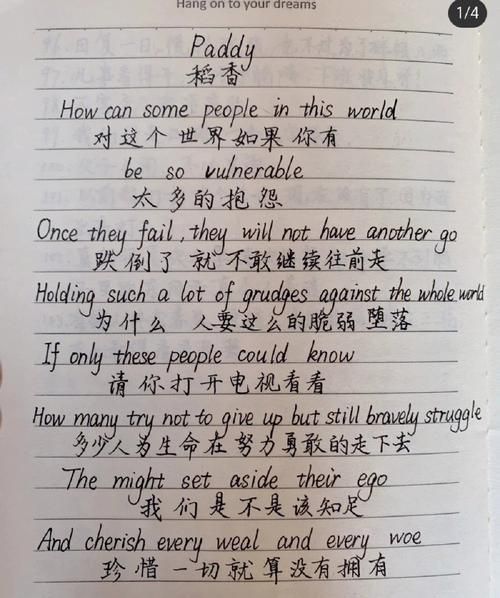 Hang on to your dreams
1/4
Paddy
稻香
How can some people in this world
对这个世界如果你有
be so vulnerable
太多的抱怨
Once they fail, they will not have another go
跌倒了 就不敢继续往前走
Holding such a lot of grudges against the whole world
为什么 人要这么的脆弱 堕落
If only these people could know
请你打开电视看看
How many try not to give up but still bravely struggle
多少人为生命在努力勇敢的走下去
The might set aside their ego
我们是不是该知足
And cherish every weal and every woe
珍惜一切就算没有拥有